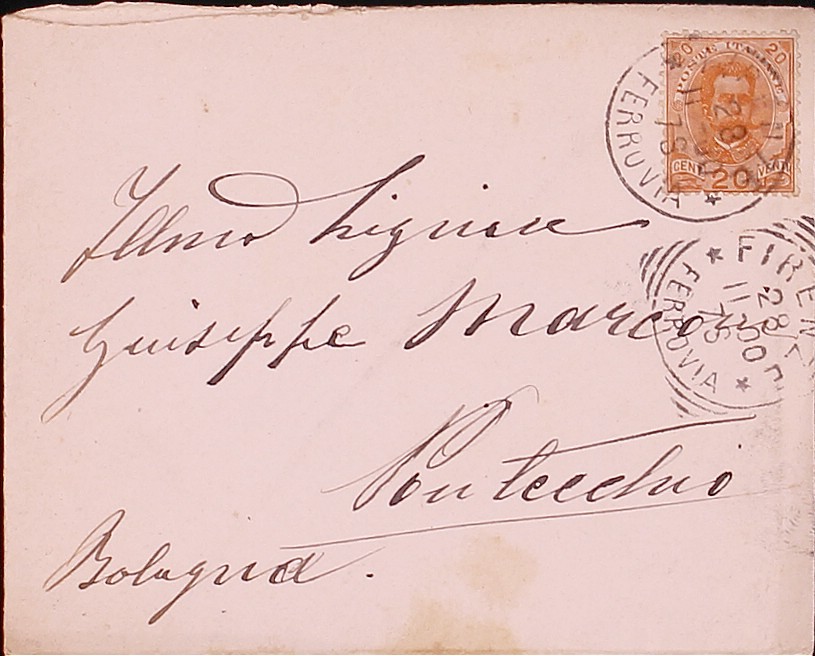 20 20
POSTE ITALIANE
CENT 20 VENTI
FERROVIA
28
11
7S
FIRENZE
28
11 00
7S
FERROVIA
Illmo Signore
Giuseppe Marconi
Pontecchio
Bologna.